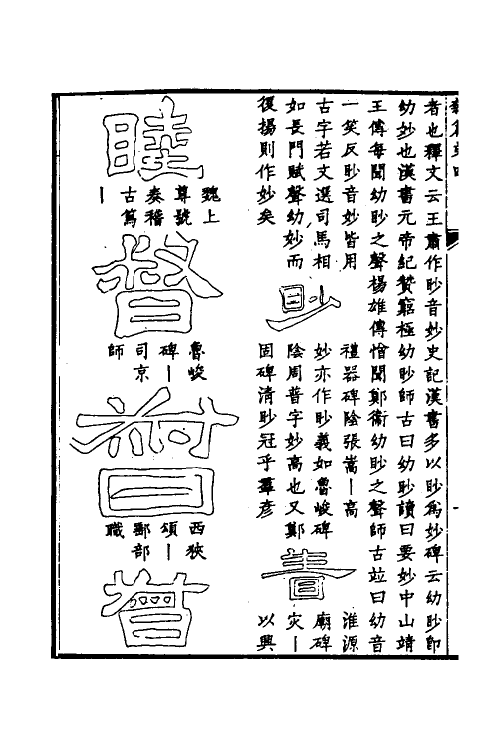 者也釋文云王肅作眇音妙史記漢書多以眇爲妙碑云幼眇即
幼妙也漢書元帝紀贊窮極幼眇師古曰幼眇讀曰要妙中山靖
王傳每聞幼眇之聲楊雄傳憎聞鄭衞幼眇之聲師古竝曰幼音
一笑反眇音妙皆用
古字若文選司馬相
如長門賦聲幼妙而
後揚則作妙矣
眇
禮器碑陰張嵩｜高
妙亦作眇義如魯峻碑
陰周普字妙高也又鄭
固碑清眇冠乎羣彦
眚
淮源
廟碑
災｜
以興
睦
魏上
尊號
奏稽
古篤
｜
督
魯峻
碑｜
司京
師
督
西狹
頌｜
鄐部
職
瞢